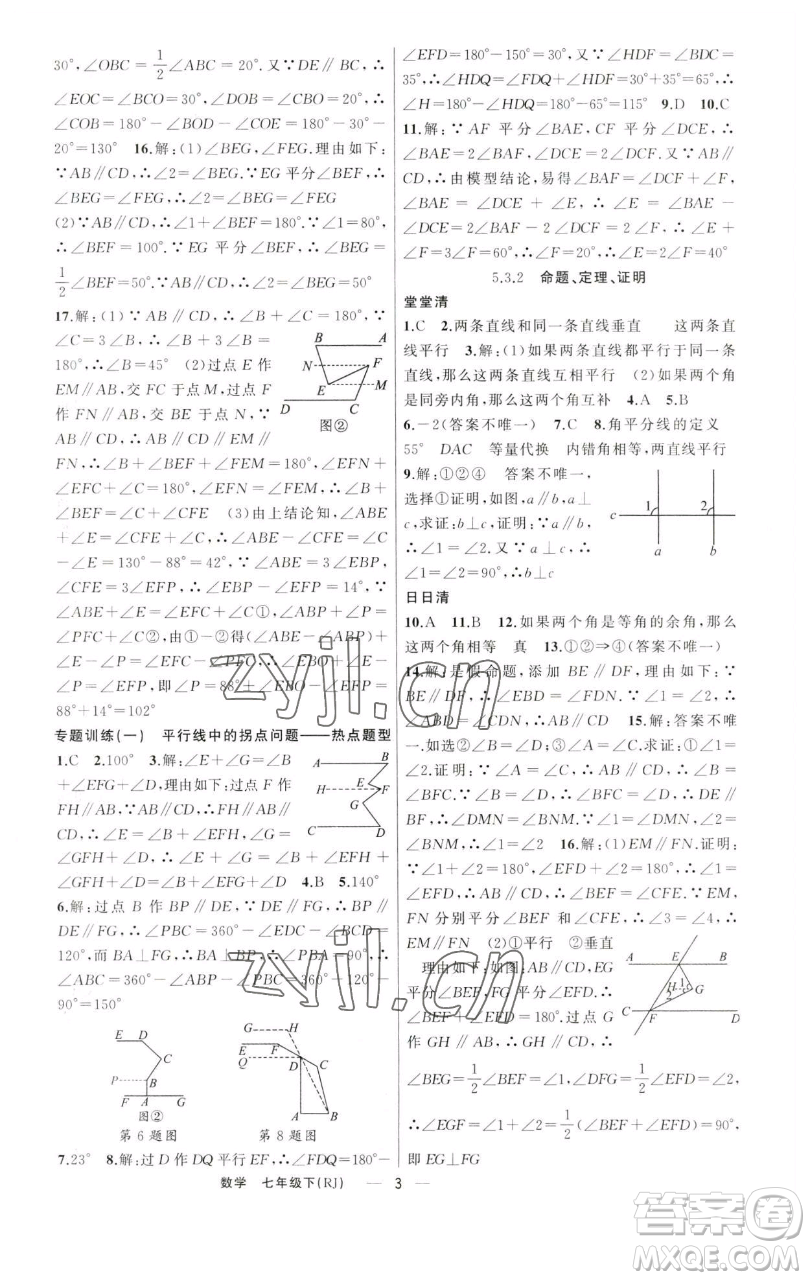 30°,∠OBC=1/2∠ABC=20°.又∵DE∥BC,∴
∠EOC=∠BCO=30°,∠DOB=∠CBO=20°,∴
∠COB=180°-∠BOD-∠COE=180°-30°-
20°=130° 16.解:(1)∠BEG,∠FEG.理由如下:
∵AB∥CD,∴∠2=∠BEG.∵EG平分∠BEF,∴
∠BEG=∠FEG,∴∠2=∠BEG=∠FEG
(2)∵AB∥CD,∴∠1+∠BEF=180°.∵∠1=80°,
∴∠BEF=100°.∵EG平分∠BEF,∴∠BEG=
1/2∠BEF=50°.∵AB∥CD,∴∠2=∠BEG=50°
17.解:(1)∵AB∥CD,∴∠B+∠C=180°,∵
∠C=3∠B,∴∠B+3∠B=
180°,∴∠B=45° (2)过点E作
EM∥AB,交FC于点M,过点F
作FN∥AB,交BE于点N,∵
AB∥CD,∴AB∥CD∥EM∥
B A
N F
E M
D C
图②
FN,∴∠B+∠BEF+∠FEM=180°,∠EFN+
∠EFC+∠C=180°,∠EFN=∠FEM,∴∠B+
∠BEF=∠C+∠CFE (3)由上结论知,∠ABE
+∠BEF=∠EFC+∠C=130°,∴∠ABE=∠EFC+
∠C-∠E=130°-88°=42°,∵∠ABE=3∠EBP,
∠CFE=3∠EFP,∴∠EBP=14°,∵
∠ABE+∠E=∠EFC+∠C①,∠ABP+∠P=
∠PFC+∠C②,由①-②得(∠ABE-∠ABP)+
∠E-∠P=∠EFC-∠PFC,∴∠EBP+∠E-∠P=
∠EFP,即∠P=88°+∠EBP-∠EFP,∴∠P=
88°+14°=102°
专题训练(一) 平行线中的拐点问题——热点题型
1.C 2.100° 3.解:∠E+∠G=∠B
+∠EFG,理由如下:过点F作
FH∥AB,∵AB∥CD,∴FH∥AB∥
CD,∴∠E=∠B+∠EFH,∠G=
A B
E
H F
G
C D
∠GFH+∠D,∴∠E+∠G=∠B+∠EFH+
∠GFH+∠D=∠B+∠EFG+∠D 4.B 5.140°
6.解:过点B作BP∥DE,∵DE∥FG,∴BP∥DE
∥FG,∴∠PBC=360°-∠CDE-∠BCD=
120°,而BA⊥FG,∴BA⊥BP,∴∠PBA=90°,∴
∠ABC=360°-∠ABP-∠PBC=360°-120°-
90°=150°
E D
C
P B
F A G
图②
第6题图
G H
E F
Q D C
A B
第8题图
7.23° 8.解:过D作DQ平行EF,∴∠FDQ=180°-
∠EFD=180°-150°=30°.又∵∠HDF=∠BDC=
35°,∴∠HDQ=∠FDQ+∠HDF=30°+35°=65°,∴
∠H=180°-∠HDQ=180°-65°=115° 9.D 10.C
11.解:∵AF平分∠BAE,CF平分∠DCE,∴
∠BAE=2∠BAF,∠DCE=2∠DCF,∵AB∥
CD,∴由模型结论,易得∠BAE=∠DCE+∠E,
∠BAF=∠DCF+∠F,∴∠E=∠BAE-
∠DCE=2∠BAF-2∠DCF=2∠F,∴∠E+
∠F=3∠F=120°,∴∠F=40°,∴∠E=2∠F=40°
5.3.2 命题、定理、证明
堂堂清
1.C 2.两条直线和同一条直线垂直 这两条直
线平行 3.解:(1)如果两条直线都平行于同一条
直线,那么这两条直线互相平行 (2)如果两个角
是同旁内角,那么这两个角互补 4.A 5.B
6.-2(答案不唯一) 7.C 8.角平分线的定义
55° DAC 等量代换 内错角相等,两直线平行
9.解:①②④ 答案不唯一,
选择①证明,如图,a∥b,a⊥
c,求证:b⊥c,证明:∵a∥b,
∴∠1=∠2,又∵a⊥c,∴
∠1=∠2=90°,∴b⊥c
1 2
c
a b
日日清
10.A 11.B 12.如果两个角是等角的余角,那么
这两个角相等 真 13.①②⇒④(答案不唯一)
14.解:是假命题,添加BE∥DF,理由如下:∵
BE∥DF,∴∠EBD=∠FDN.∵∠1=∠2,∴
∠ABD=∠CDN,∴AB∥CD 15.解:答案不唯
一.如选②③为条件,①为结论.求证:∠1=
∠2.证明:∵∠A=∠C,∴AB∥CD,∴∠B=
∠BFC.又∵∠B=∠D,∴∠BFC=∠D,∴DE∥
BF,∴∠DMN=∠BNM.∵∠1=∠DMN,∠2=
∠BNM,∴∠1=∠2 16.解:(1)EM∥FN.证明:
∵∠1+∠2=180°,∠EFD+∠2=180°,∴∠1=
∠EFD,∴AB∥CD,∴∠BEF=∠CFE.∵EM,
FN分别平分∠BEF和∠CFE,∴∠3=∠4,∴
EM∥FN (2)①平行 ②垂直
理由如下:如图:∵AB∥CD,EG
平分∠BEF,FG平分∠EFD.∴
∠BEF+∠EFD=180°.过点G
作GH∥AB,∴GH∥CD,∴
A E B
H G
C F D
∠BEG=1/2∠BEF=∠1,∠DFG=1/2∠EFD=∠2,
∴∠EGF=∠1+∠2=1/2(∠BEF+∠EFD)=90°,
即EG⊥FG
数学 七年级下(RJ) — 3 —
zyjl.cn
zyjl.cn
答案圈
MXQE.COM